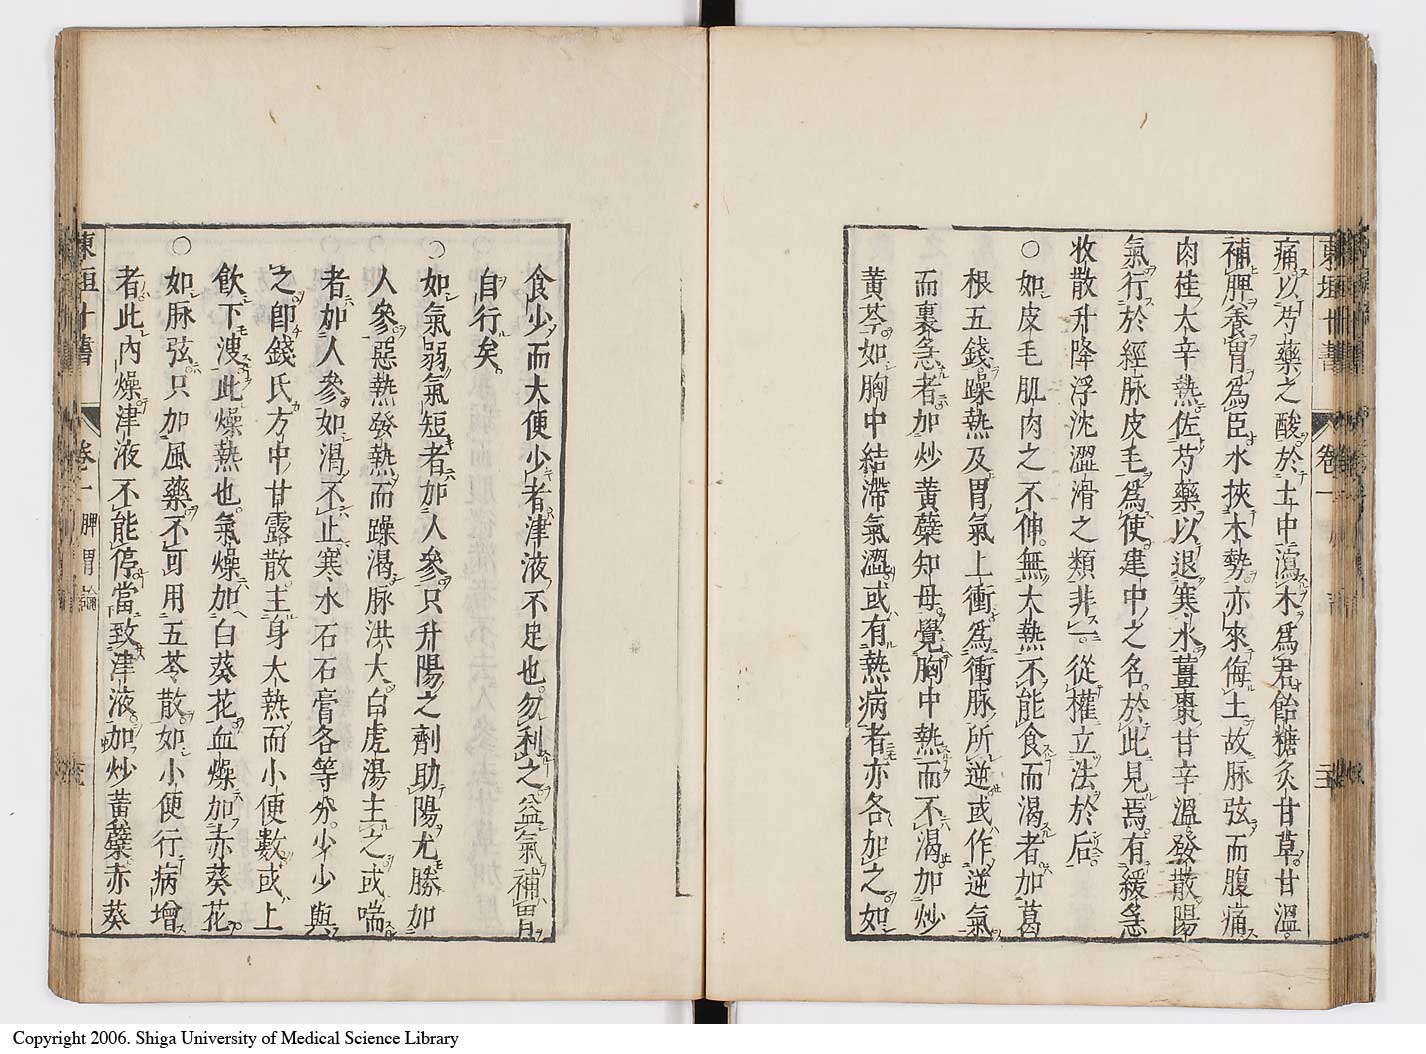 東垣十書 卷一 三
痛以芍藥之酸於土中瀉木為君飴糖炙甘草甘溫
補脾養胃為臣水挾木勢亦來侮土故脉弦而腹痛
肉桂大辛熱佐芍藥以退寒水薑棗甘辛溫發散陽
氣行於經脉皮毛為使建中之名於此見焉有緩急
收散升降浮沈澀滑之類非一從權立法於后
○如皮毛肌肉之不伸無大熱不能食而渴者加葛
根五錢躁熱及胃氣上衝為衝脉所逆或作逆氣
而裏急者加炒黃蘗知母覺胸中熱而不渴加炒
黃芩如胸中結滯氣澀或有熱病者亦各加之如
食少而大便少者津液不足也勿利之益氣補胃
自行矣
○如氣弱氣短者加人參只升陽之劑助陽尤勝加
人參惡熱發熱而躁渴脉洪大白虎湯主之或喘
者加人參如渴不止寒水石石膏各等分少少與
之即錢氏方中甘露散主身大熱而小便數或上
飲下溲此燥熱也氣燥加白葵花血燥加赤葵花
○如脉弦只加風藥不可用五苓散如小便行病增
者此內燥津液不能停當致津液加炒黃蘗赤葵
東垣十書 卷一 脾胃論
Copyright 2006. Shiga University of Medical Science Library